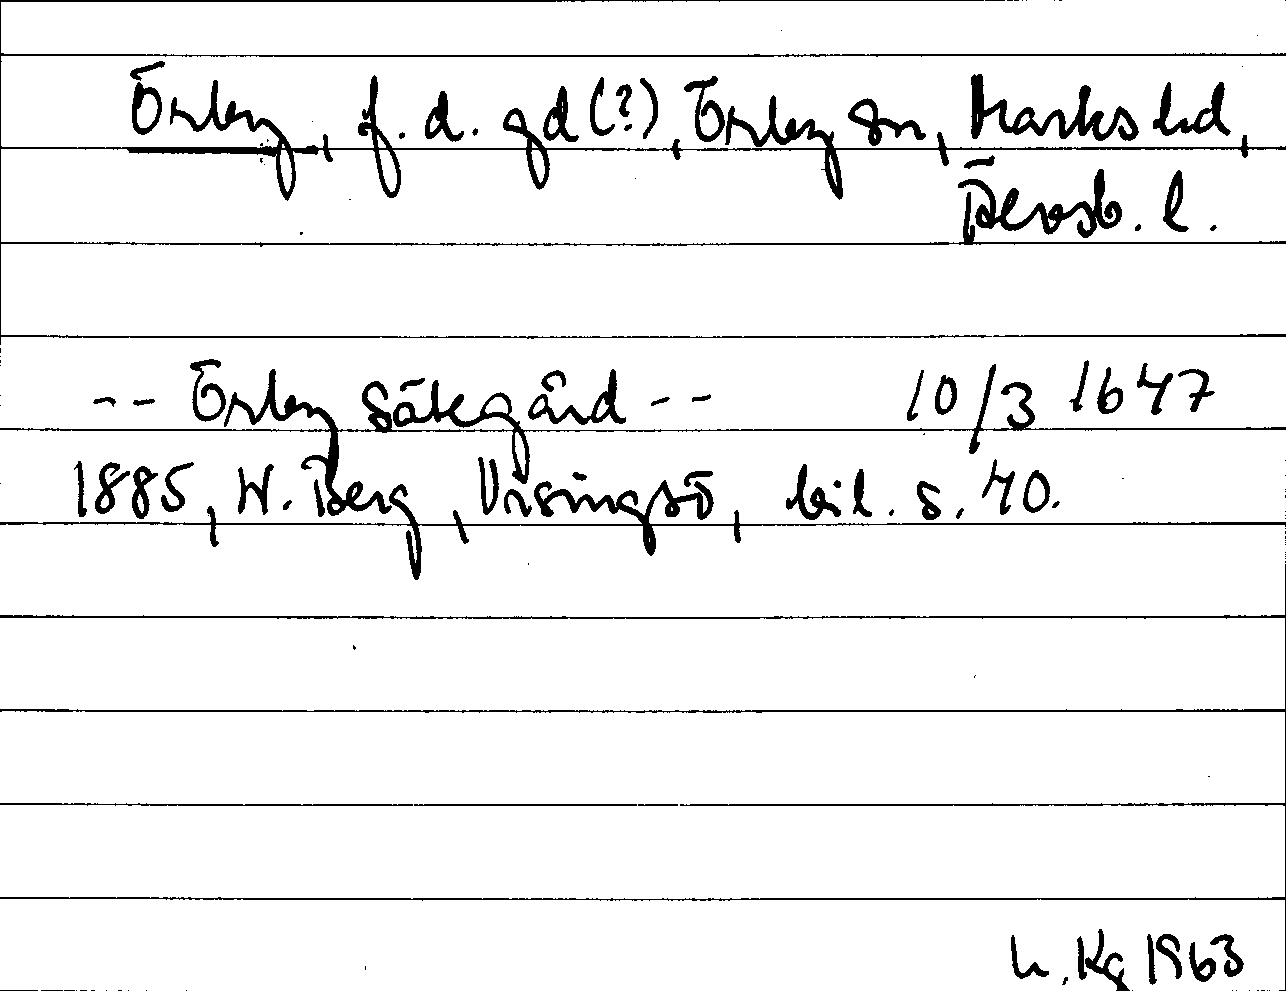 Örby, f. d. gd (?), Örby sn, Marks hd,
Älvsb. l.
-- Örby sätegård -- 10/3 1647
1885, W. Berg, Visingsö, bil. s. 40.
h. Kg 1963